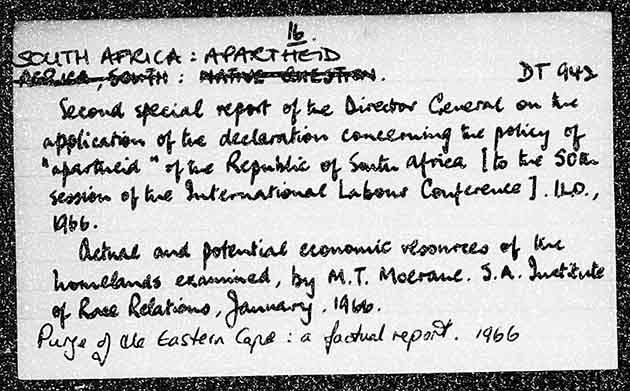 16.
SOUTH AFRICA : APARTHEID
AFRICA, SOUTH : NATIVE QUESTION.
DT 942
Second special report of the Director General on the
application of the declaration concerning the policy of
"apartheid" of the Republic of South Africa [to the 50th
session of the International Labour Conference]. I.L.O.,
1966.
Actual and potential economic resources of the
homelands examined, by M.T. Moerane. S.A. Institute
of Race Relations, January. 1966.
Purge of the Eastern Cape : a factual report. 1966